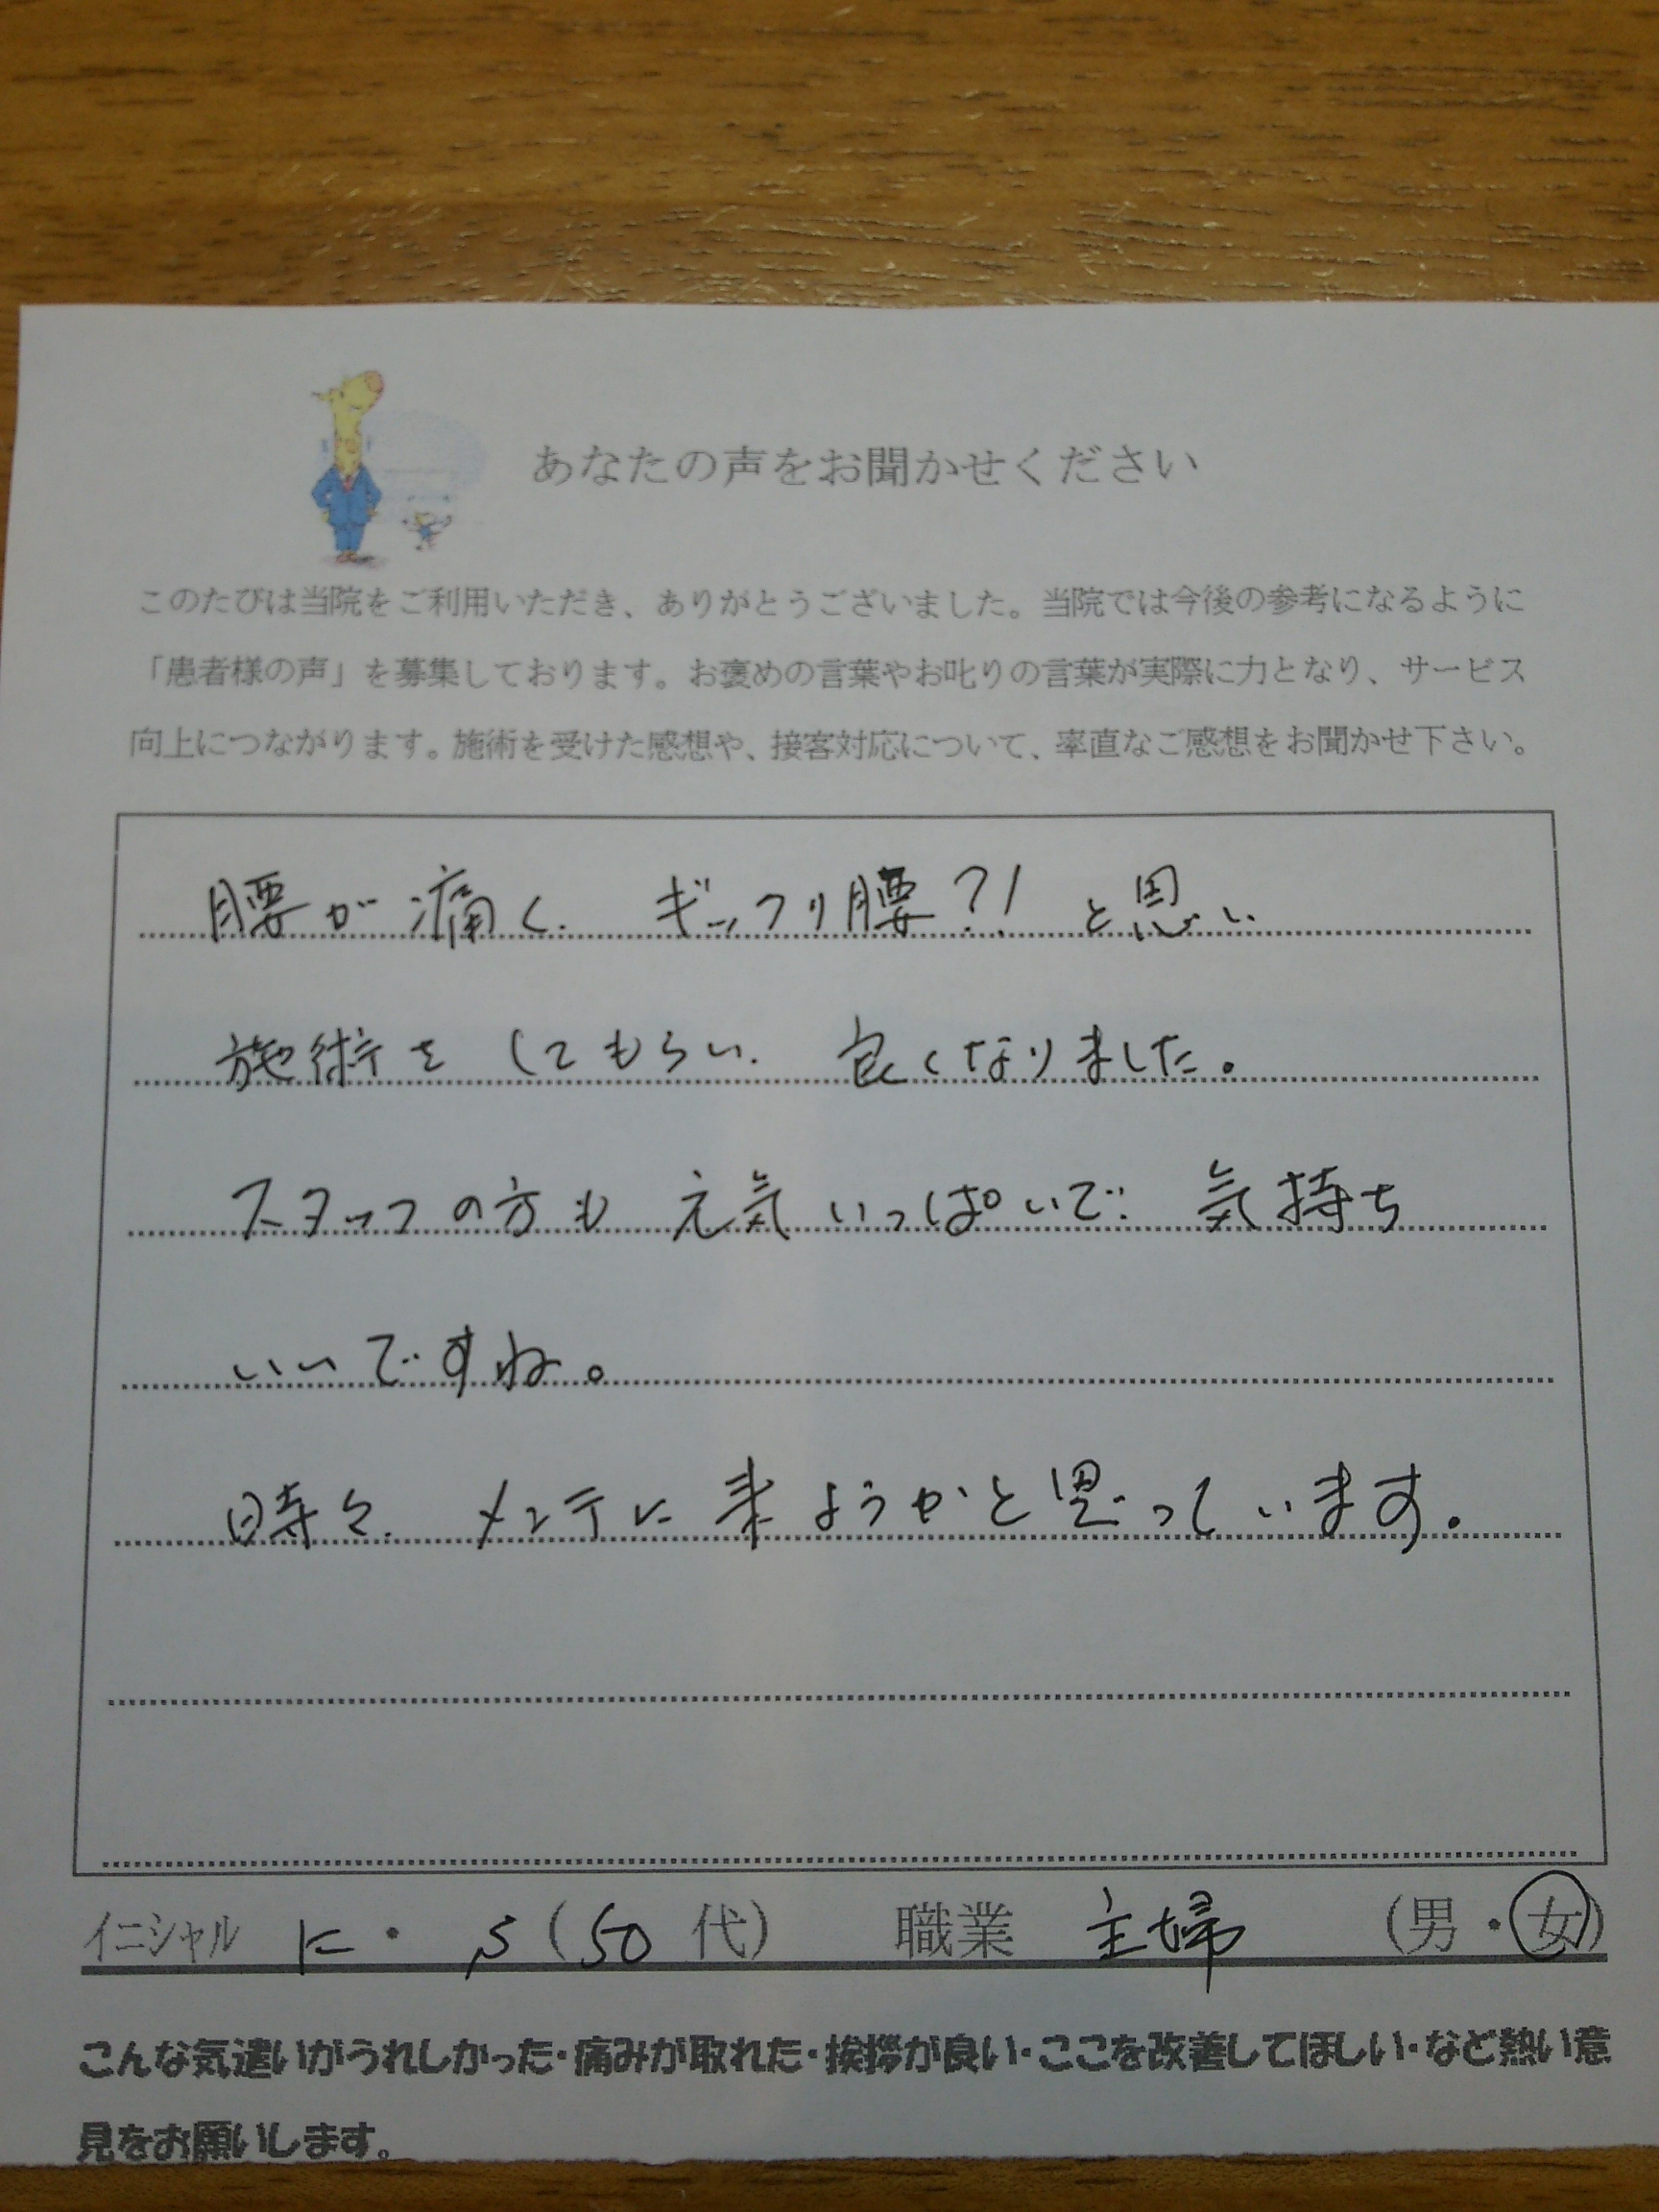 あなたの声をお聞かせください
このたびは当院をご利用いただき、ありがとうございました。当院では今後の参考になるように
「患者様の声」を募集しております。お褒めの言葉やお叱りの言葉が実際に力となり、サービス
向上につながります。施術を受けた感想や、接客対応について、率直なご感想をお聞かせ下さい。
腰が痛く、ギックリ腰?!と思い
施術をしてもらい、良くなりました。
スタッフの方も元気いっぱいで気持ち
いいですね。
時々、メンテに来ようかと思っています。
イニシャル K・S(50代) 職業 主婦 (男・女)
こんな気遣いがうれしかった・痛みが取れた・挨拶が良い・ここを改善してほしい・など熱い意
見をお願いします。